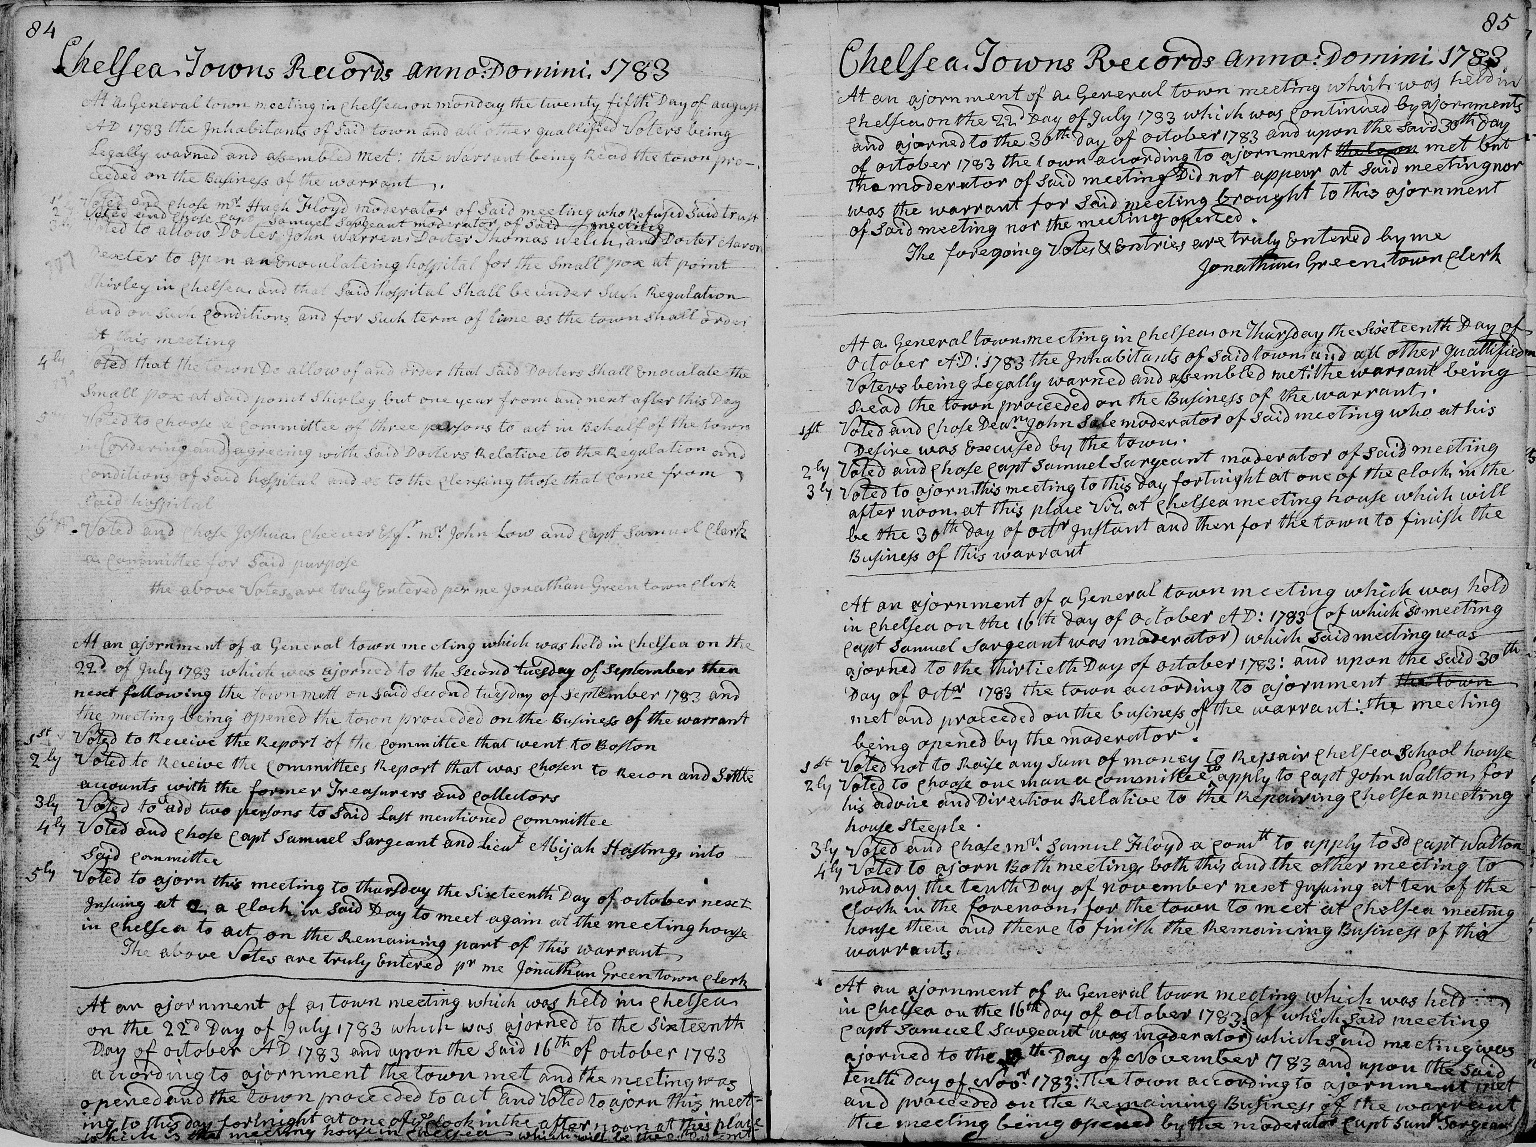 84
Chelsea Towns Records anno: Domini. 1783
At a General town meeting in Chelsea on monday the twenty fifth Day of august
AD 1783 the Inhabitants of Said town and all other quallified Voters being
Legally warned and asembled met: the warrant being Read the town pro-
ceeded on the Business of the warrant.
1st Voted and Chose mr. Hugh Floyd moderator of Said meeting who Refused Said trust
2ly Voted and Chose Capt Samuel Sargeant moderator of Said meeting
3ly Voted to allow Docter John warren Docter Thomas welch, and Docter Aaron
Dexter to Open an Enoculateing hospital for the Small pox at point
Shirley in Chelsea and that Said hospital Shall be under Such Regulation
and on Such Conditions and for Such term of time as the town Shall order
at this meeting
4ly Voted that the town Do allow of and order that Said Docters Shall Enoculate the
Small pox at Said point Shirley but one year from and next after this Day
Voted to Choose a Committee of three persons to act in Behalf of the town
in ordering and agreeing with Said Docters Relative to the Regulation and
Conditions of Said hospital and as to the Clensing those that Come from
Said hospital
6 Voted and Chose Joshua Cheever Esqr. mr. John Low and Capt Samuel Clark
a Committee for Said purpose
the above Votes are truly Entered per me Jonathan Green town Clerk
At an ajornment of a General town meeting which was held in Chelsea on the
22d. of July 1783 which was ajorned to the Second tuesday of September then
next following the town mett on Said Second tuesday of September 1783 and
the meeting being opened the town proceeded on the Business of the warrant
1st Voted to Receive the Report of the Committee that went to Boston
2ly Voted to Receive the Committees Report that was Chosen to Recon and Settle
accounts with the former Treasurers and Collectors
3ly Voted to add two persons to Said Last mentioned Committee
4ly Voted and Chose Capt Samuel Sargeant and Lieut Abijah Hastings into
Said Committee
5ly Voted to ajorn this meeting to thursday the Sixteenth Day of october next
Insuing at 2 a Clock in Said Day to meet again at the meeting house
in Chelsea to act on the Remaining part of this warrant
The above Votes are truly Entered pr me Jonathan Green town Clerk
At an ajornment of a town meeting which was held in Chelsea
on the 22d Day of July 1783 which was ajorned to the Sixteenth
Day of october AD 1783 and upon the Said 16th of october 1783
according to ajornment the town met and the meeting was
opened and the town proceeded to act and Voted to ajorn this meet-
ing to this day fortnight at one of ye Clock in the after noon at this place
which is the meeting house in Chelsea which will be the
85
Chelsea Towns Records anno: Domini 1783
At an ajornment of a General town meeting which was held in
Chelsea on the 22d Day of July 1783 which was Continued by ajornments
and ajorned to the 30th day of october 1783 and upon the Said 30th Day
of october 1783 the town according to ajornment the town met but
the moderator of Said meeting Did not appear at Said meeting nor
was the warrant for Said meeting brought to this ajornment
of Said meeting nor the meeting opened.
The foregoing Votes & Entries are truly Entered by me
Jonathan Green town Clerk
At a General town meeting in Chelsea on Thursday the Sixteenth Day of
October AD: 1783 the Inhabitants of Said town and all other Quallified
Voters being Legally warned and asembled met: the warrant being
Read the town proceeded on the Business of the warrant.
1st Voted and Chose Deacn John Sale moderator of Said meeting who at his
Desire was Excused by the town.
2ly Voted and Chose Capt Samuel Sargeant moderator of Said meeting
3ly Voted to ajorn this meeting to this Day fortnight at one of the Clock in the
after noon at this place Viz. at Chelsea meeting house which will
be the 30th Day of octr Instant and then for the town to finish the
Business of this warrant
At an ajornment of a General town meeting which was held
in Chelsea on the 16th day of october AD: 1783 (of which Sd meeting
Capt Samuel Sargeant was moderator) which Said meeting was
ajorned to the thirtieth Day of october 1783: and upon the Said 30th
Day of octbr 1783 the town according to ajornment the town
met and proceeded on the business of the warrant: the meeting
being opened by the moderator.
1st Voted not to Raise any Sum of money to Repair Chelsea School house
2ly Voted to Choose one man a Committee to apply to Capt John Walton for
his advice and Direction Relative to the Repairing Chelsea meeting
house Steeple.
3ly Voted and Chose mr. Samuel Floyd a Comtt to apply to Sd Capt Walton
4ly Voted to ajorn Both meetings both this and the other meeting to
monday the tenth Day of november next Insuing at ten of the
Clock in the forenoon for the town to meet at Chelsea meeting
house then and there to finish the Remaining Business of this
warrant
At an ajornment of a General town meeting which was held
in Chelsea on the 16th day of october 1783 of which Said meeting
Capt Samuel Sargeant was moderator which Said meeting was
ajorned to the 10th Day of November 1783 and upon the Said
tenth day of Novr 1783: the town according to ajornment met
and proceeded on the Remaining Business of the warrant
the meeting being opened by the moderator Capt Saml Sargeant